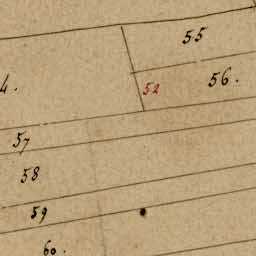 55
56.
4.
52
57
58
59
60.